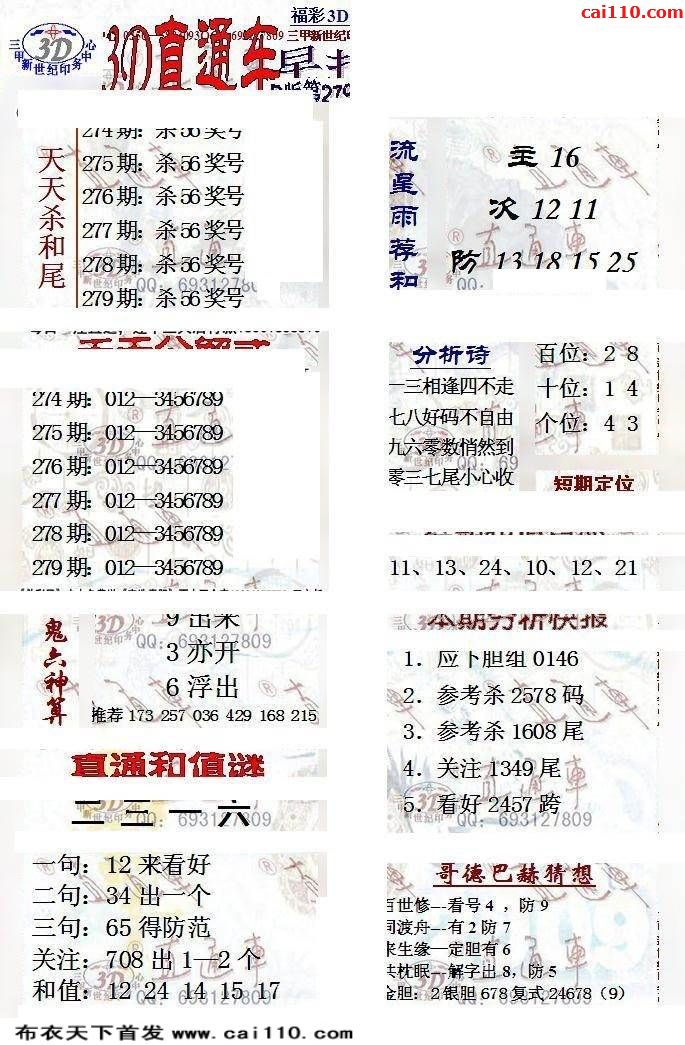 cai110.com
福彩3D
3D直通车
三甲新世纪印务中心
3D
天天杀和尾
275期：杀56奖号
276期：杀56奖号
277期：杀56奖号
278期：杀56奖号
279期：杀56奖号
流星雨荐和
主 16
次 12 11
防 13 18 15 25
274期：012—3456789
275期：012—3456789
276期：012—3456789
277期：012—3456789
278期：012—3456789
279期：012—3456789
分析诗
一三相逢四不走
七八好码不自由
九六零数悄然到
零三七尾小心收
百位：2 8
十位：1 4
个位：4 3
短期定位
11、13、24、10、12、21
鬼六神算
9 出来
3 亦开
6 浮出
推荐 173 257 036 429 168 215
QQ：693127809
本期分析快报
1．应下胆组 0146
2．参考杀 2578 码
3．参考杀 1608 尾
4．关注 1349 尾
5．看好 2457 跨
QQ：693127809
直通和值谜
一句：12 来看好
二句：34 出一个
三句：65 得防范
关注：708 出 1—2 个
和值：12 24 14 15 17
哥德巴赫猜想
百世修---看号 4 ，防 9
同渡舟---有 2 防 7
来生缘---定胆有 6
共枕眠---解字出 8，防 5
金胆：2 银胆 678 复式 24678（9）
布衣天下首发 www.cai110.com